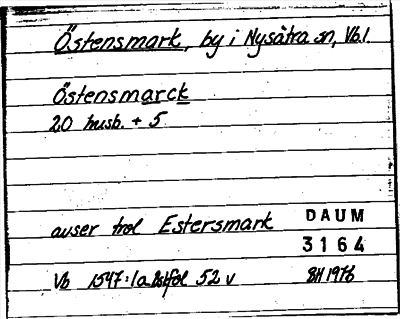 Östensmark, by i Nysätra sn, Vb.l.
Östensmarck
20 husb. + 5
avser trol Estersmark
DAUM
3164
Vb 1547:1 a fol 52 v
BH 1976